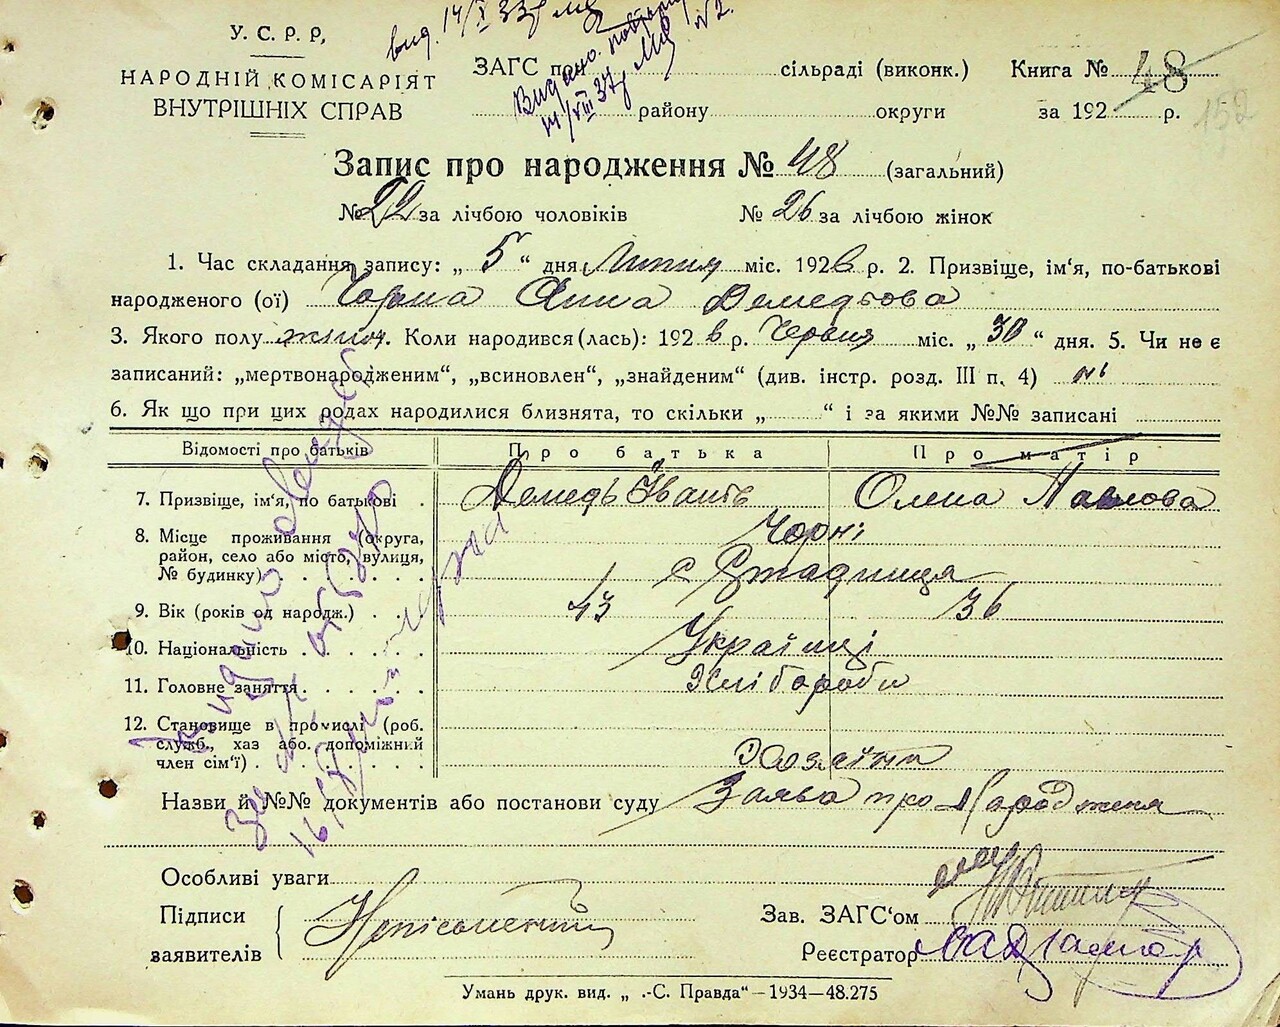 У. С. Р. Р,
НАРОДНІЙ КОМІСАРІЯТ
ВНУТРІШНІХ СПРАВ
вид. 14/X 33р
Видано. повторно
14/VIII 37р №2.
ЗАГС по сільраді (виконк.) Книга № 48
району округи за 192 р.
152
Запис про народження № 48 (загальний)
№ 22 за лічбою чоловіків № 26 за лічбою жінок
1. Час складання запису: „ 5 “ дня Липня міс. 192 р. 2. Призвіще, ім'я, по-батькові
народженого (ої) Чорна Анна Демедьова
3. Якого полу жіноч. Коли народився (лась): 192 р. Червня міс. „ 30 “ дня. 5. Чи не є
записаний: „мертвонародженим“, „всиновлен“, „знайденим“ (див. інстр. розд. III п. 4) ні
6. Як що при цих родах народилися близнята, то скільки „ “ і за якими №№ записані
Відомості про батьків Про батька Про матір
7. Призвіще, ім'я, по батькові Демедь Іванів Олена Павлова
Чорні
8. Місце проживання (округа,
район, село або місто, вулиця,
№ будинку) с Стадниця
9. Вік (років од народж.) 43 36
10. Національність Українці
11. Головне заняття Хлібороби
12. Становище в промислі (роб.
служб., хаз або. допоміжний
член сім'ї) Хазяїни
Назви й №№ документів або постанови суду Заява про Народженя
Особливі уваги
Підписи
заявителів Неписьменний
Зав. ЗАГС'ом
Реєстратор
Умань друк. вид. „ .-С. Правда“—1934—48.275